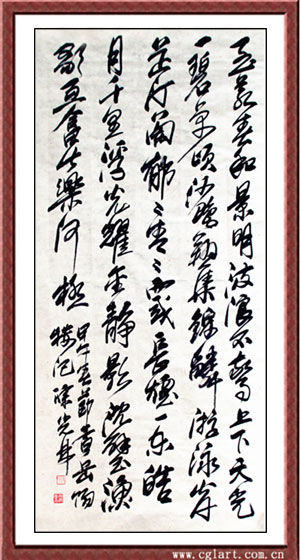 至若春和景明波浪不驚上下天光
一碧萬頃沙鷗翔集錦鱗游泳岸
芷汀蘭郁々青々而或長煙一空皓
月千里浮光耀金静影沈璧漁
歌互答此樂何極
甲午春節書岳陽
樓记
www.cglart.com.cn